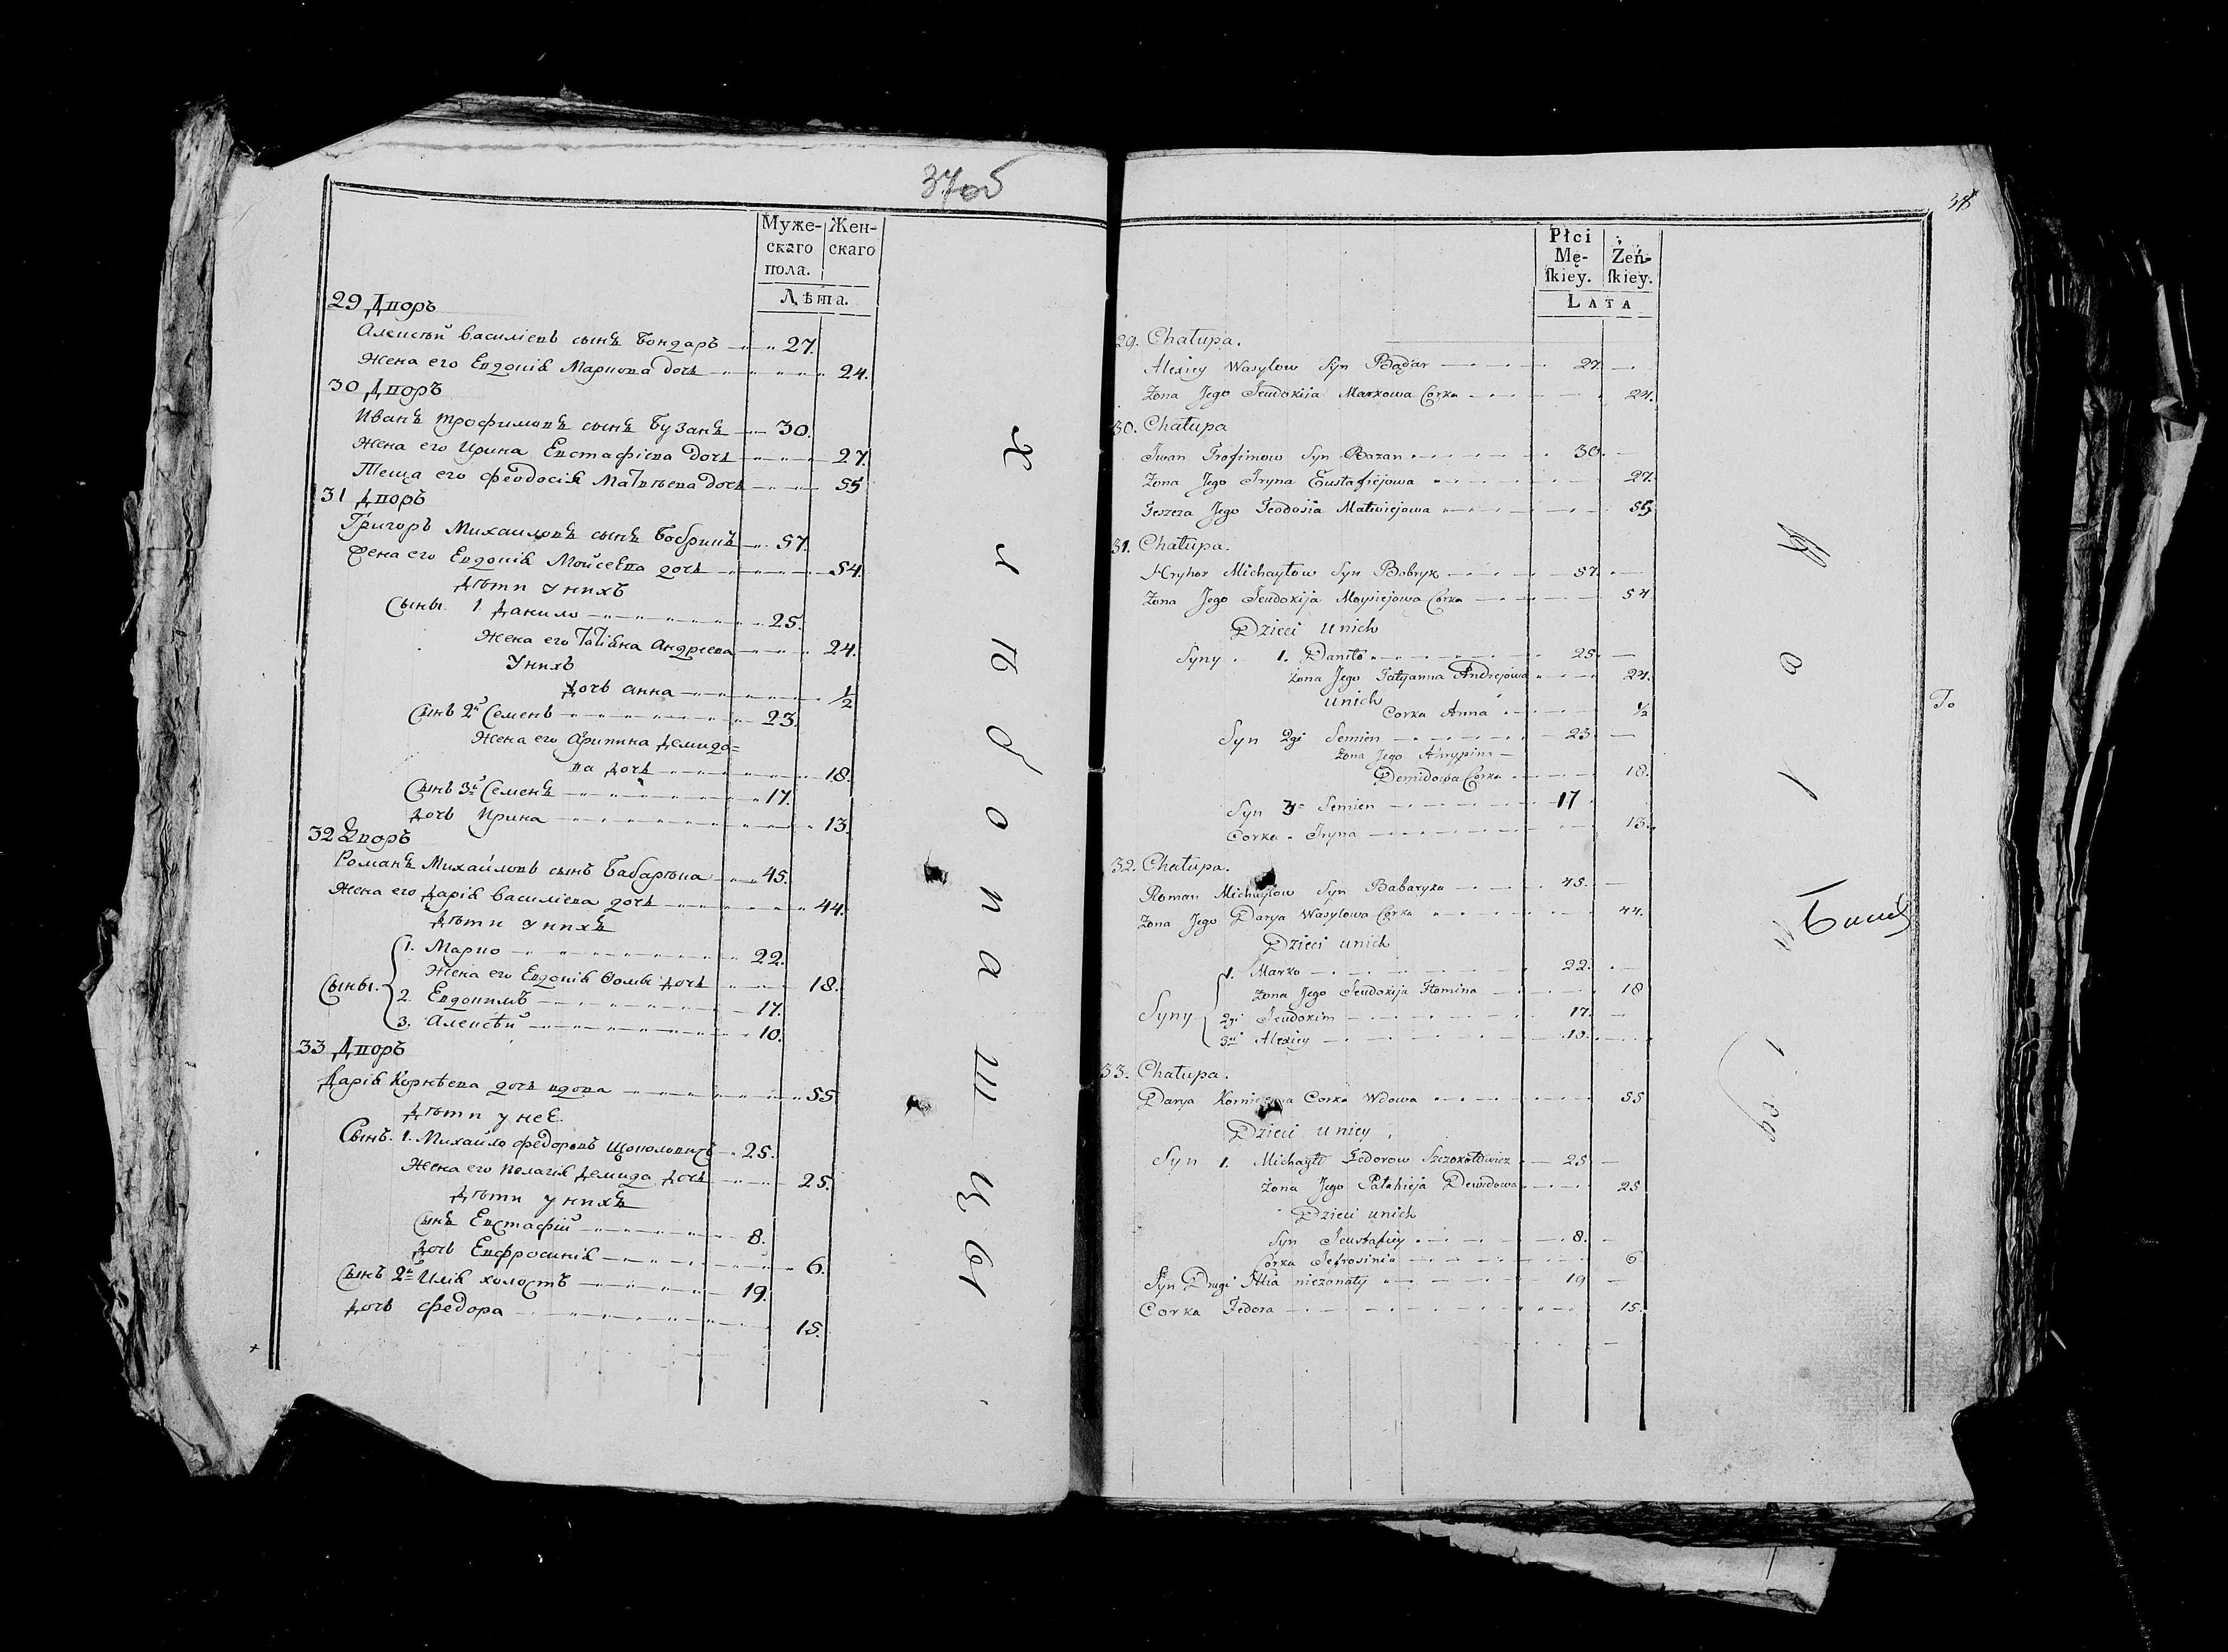 37об
Муже-скаго пола. Жен-скаго
Лѣта.
29 Дворъ
Алексѣй Василіевъ сынъ Бондаръ 27.
Жена его Евдокія Маркова дочь 24.
30 Дворъ
Иванъ Трофимовъ сынъ Бузанъ 30.
Жена его Ирина Евстафіева дочь 27.
Теща его Феодосія Матвѣева дочь 55
31 Дворъ
Григоръ Михайловъ сынъ Бобрикъ 57.
Жена его Евдокія Мойсеева дочь 54.
Дѣти у нихъ
Сыны. 1 Данило 25.
Жена его Татіяна Андреева 24.
У нихъ
Дочь Анна 1/2
Сынъ 2й Семенъ 23.
Жена его Агрипина Демидо=
ва дочь 18.
Сынъ 3й Семенъ 17.
Дочь Ирина 13.
32 Дворъ
Романъ Михайловъ сынъ Бабарыка 45.
Жена его Дарія Василіева дочь 44.
Дѣти у нихъ
Сыны. 1. Марко 22.
Жена его Евдокія Фомы дочь 18.
2. Евдокимъ 17.
3. Алексѣй 10.
33 Дворъ
Дарія Корнѣева дочь вдова 55
Дѣти у неё.
Сынъ. 1. Михайло Федоровъ Щоколовичъ 25.
Жена его Пелагія Демида дочь 25.
Дѣти у нихъ
Сынъ Евстафій 8.
Дочь Евфросинія 6.
Сынъ 2й Илія холостъ 19.
Дочь Федора 15.
38
Płci Mę-ſkiey. Żeń-ſkiey.
LATA
29. Chałupa.
Alexiey Wasylow Syn 27.
Zona Jego Jeudokija Markowa Corka 24.
30. Chałupa
Iwan Trofimow Syn 30.
Zona Jego Iryna Eustafiejowa 27.
Teszcza Jego Teodosia Matwiejowa 55
31. Chałupa.
Hryhor Michayłow Syn Bobryk 57.
Zona Jego Jeudokija Moysiejowa Corka 54
Dzieci u nich
Syny 1. Daniło 25.
Zona Jego Tatyanna Andrejowa 24.
u nich
Corka Anna 1/2
Syn 2gi Semien 23.
Zona Jego Ahrypina
Demidowa Corka 18.
Syn 3 Semien 17
Corka Iryna 13.
32. Chałupa.
Roman Michayłow Syn Babaryka 45.
Zona Jego Darya Wasylowa Corka 44.
Dzieci u nich
Syny 1. Marko 22.
Zona Jego Jeudokija Homina 18
2gi Jeudokim 17.
3ci Alexiey 10.
33. Chałupa.
Darya Corka Wdowa 55
Dzieci u niey
Syn 1. Michayło Fedorow Szczokołowicz 25
Zona Jego Pałahieja Demidowa 25
Dzieci u nich
Syn Jeustafiey 8.
Corka Jefrosinia 6
Syn Drugi Illia niezonaty 19
Corka Fedora 15.